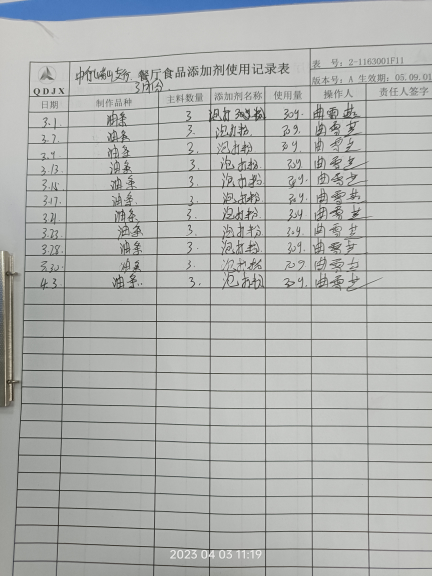 餐厅食品添加剂使用记录表
表 号: 2-1163001F11
版本号: A 生效期: 05.09.01
QDJX
日期 制作品种 主料数量 添加剂名称 使用量 操作人 责任人签字
3.1 油条 3 泡打粉 30g 曲雪芝
3.7 油条 3. 泡打粉 30g 曲雪芝
3.9 油条 3 泡打粉 30g 曲雪芝
3.13 油条 3. 泡打粉 30g 曲雪芝
油条 3. 泡打粉 30g. 曲雪芝
3.17. 油条 3. 泡打粉 30g. 曲雪芝
油条 3. 泡打粉 30g 曲雪芝
3.23 油条 3. 泡打粉 30g. 曲雪芝
3.28 油条 3. 泡打粉 30g. 曲雪芝
3.30 油条 3. 泡打粉 30g 曲雪芝
4.3 油条 3. 泡打粉 30g. 曲雪芝
2023 04 03 11:19